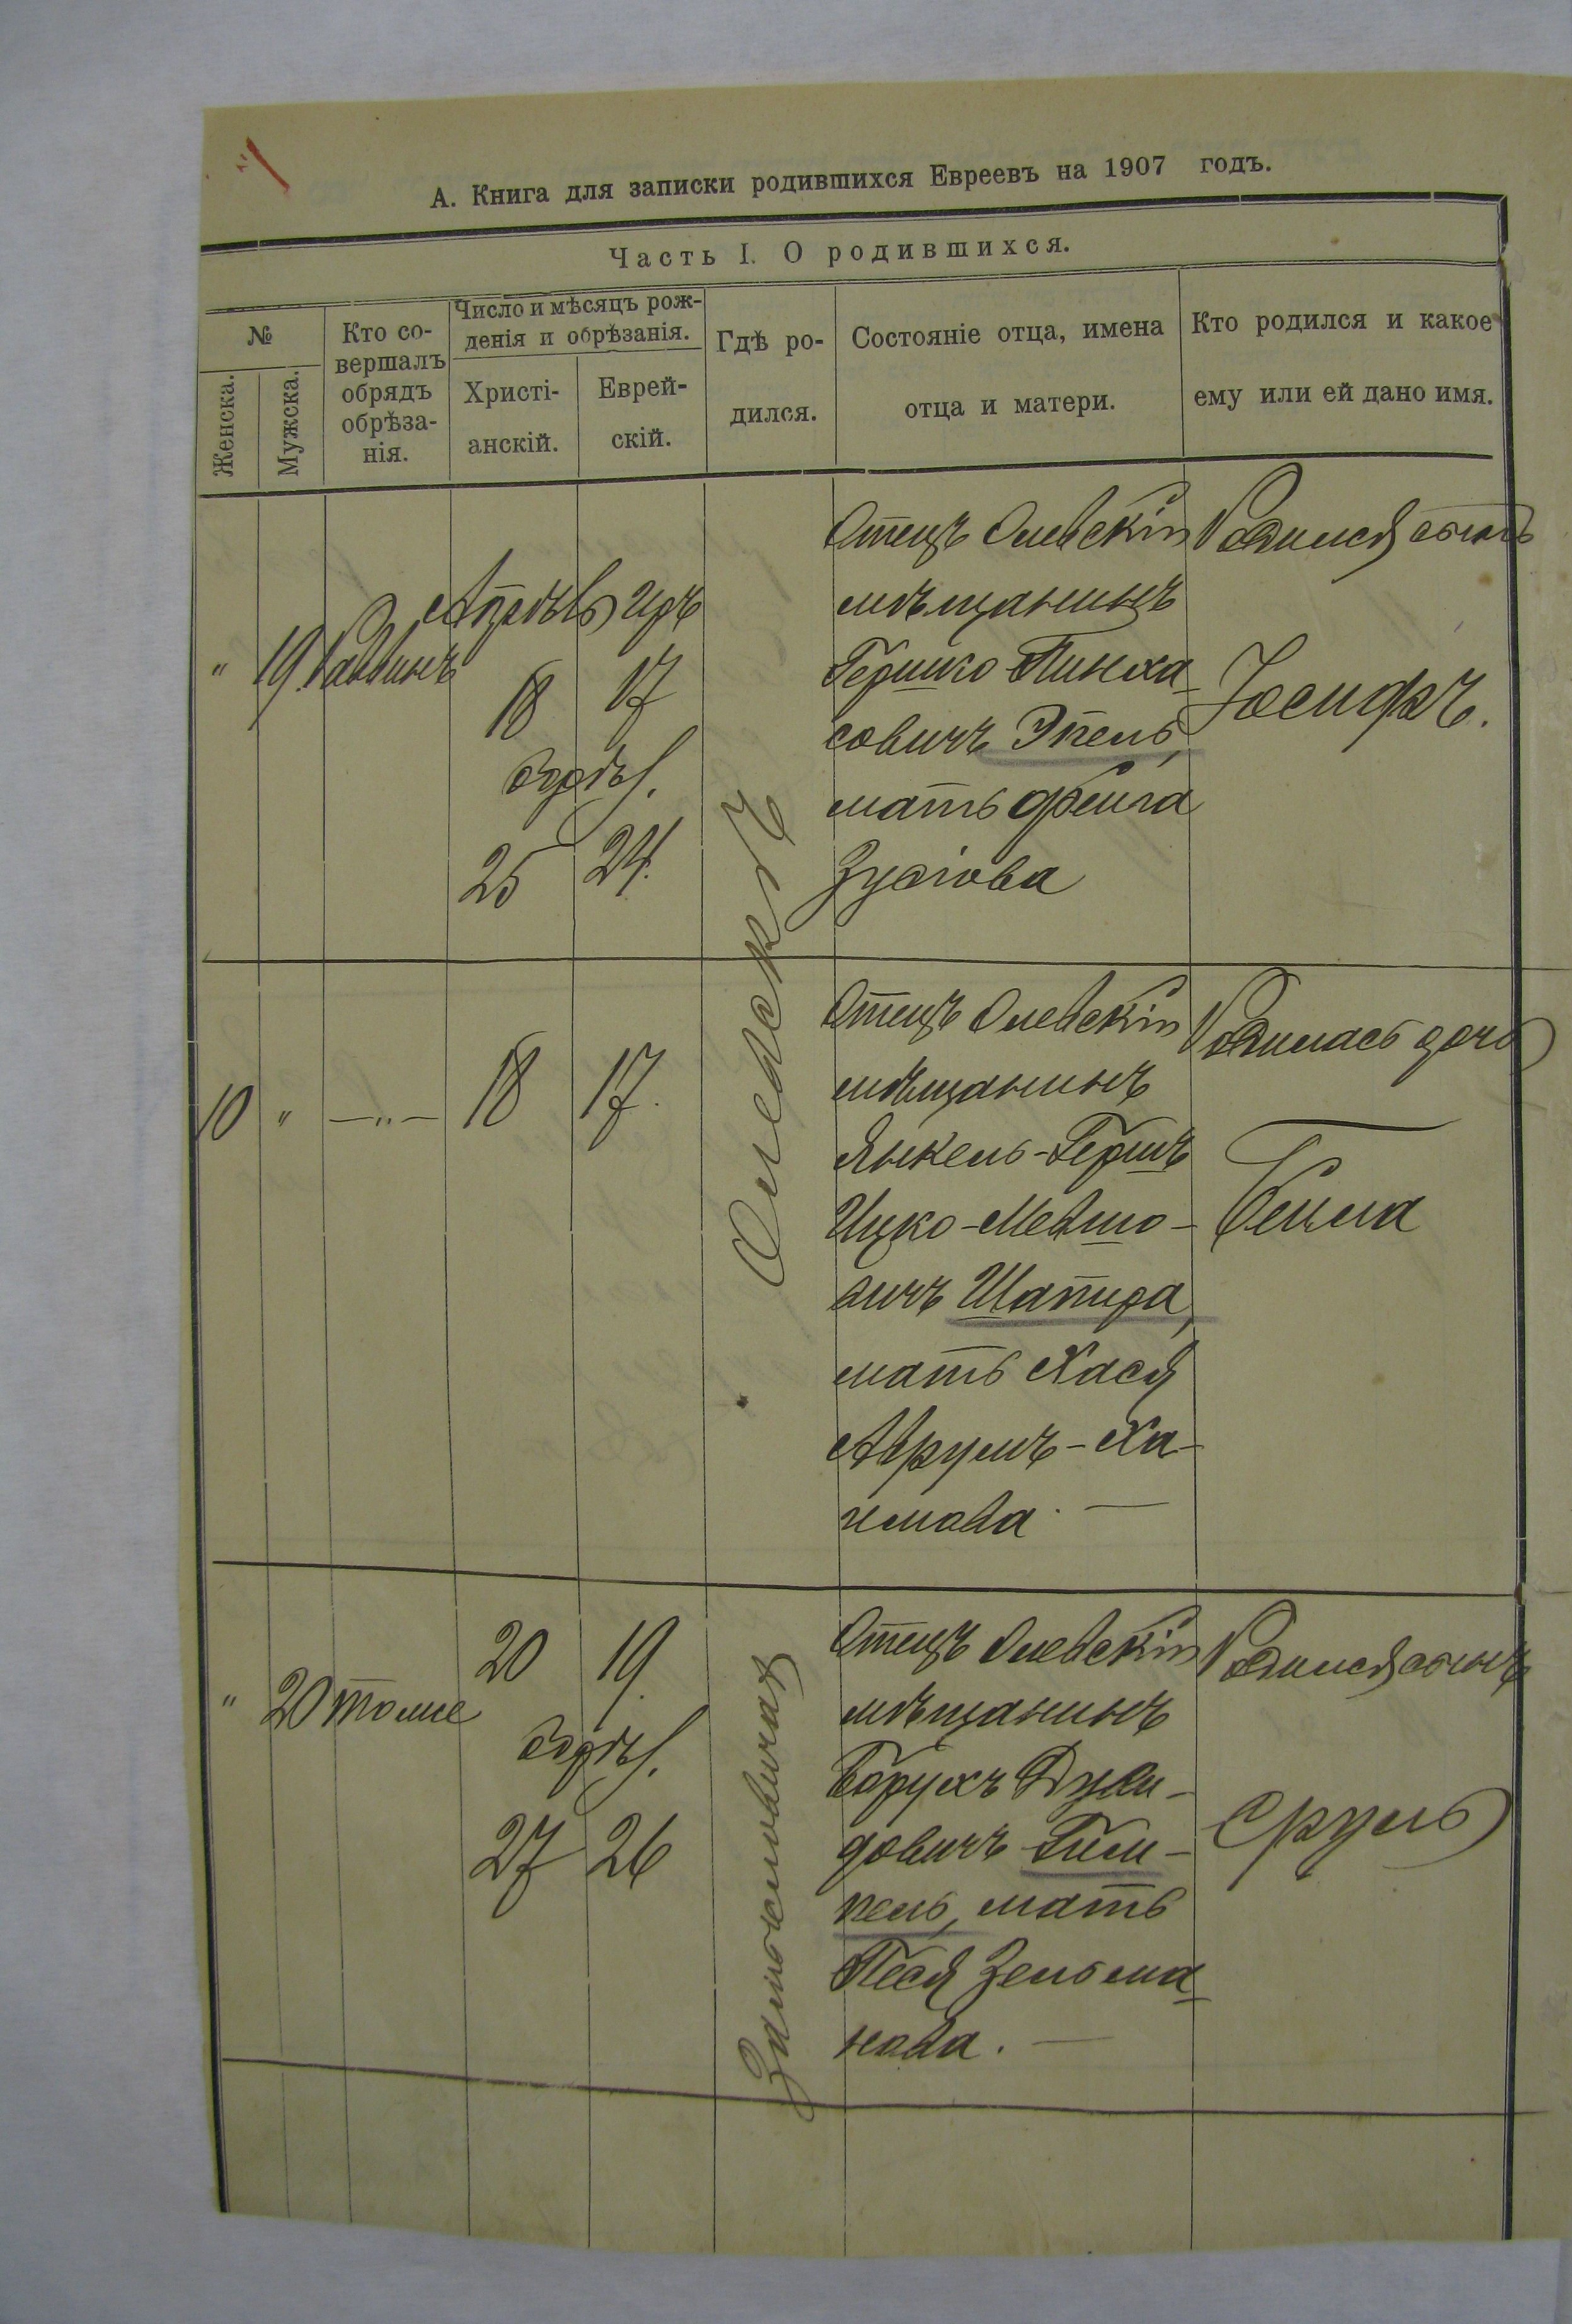 А. Книга для записки родившихся Евреевъ на 1907 годъ.
Часть I. О родившихся.
№
Женска.
Мужска.
Кто со-
вершалъ
обрядъ
обрѣза-
нія.
Число и мѣсяцъ рож-
денія и обрѣзанія.
Христі-
анскій.
Еврей-
скій.
Гдѣ ро-
дился.
Состояніе отца, имена
отца и матери.
Кто родился и какое
ему или ей дано имя.
" 19. Раввинъ
Апрѣль Иръ
18 17
обрѣз.
25 24.
Олевскъ
Отецъ Олевскій
мѣщанинъ
Гершко Пинха-
совичъ Эпель,
мать Фейга
Зусіова
Родился сынъ
Іосифъ.
10 " —"— 18 17.
Отецъ Олевскій
мѣщанинъ
Янкель-Гершъ
Ицко-Мовшо-
вичъ Шапира,
мать Хася
Аврумъ-Ха-
имова. —
Родилась дочь
Бейла
" 20 тоже
20 19.
обрѣз.
27 26
Отецъ Олевскій
мѣщанинъ
Борухъ
довичъ Гим-
пель, мать
Песя Зельма-
нова. —
Родился сынъ
Сруль